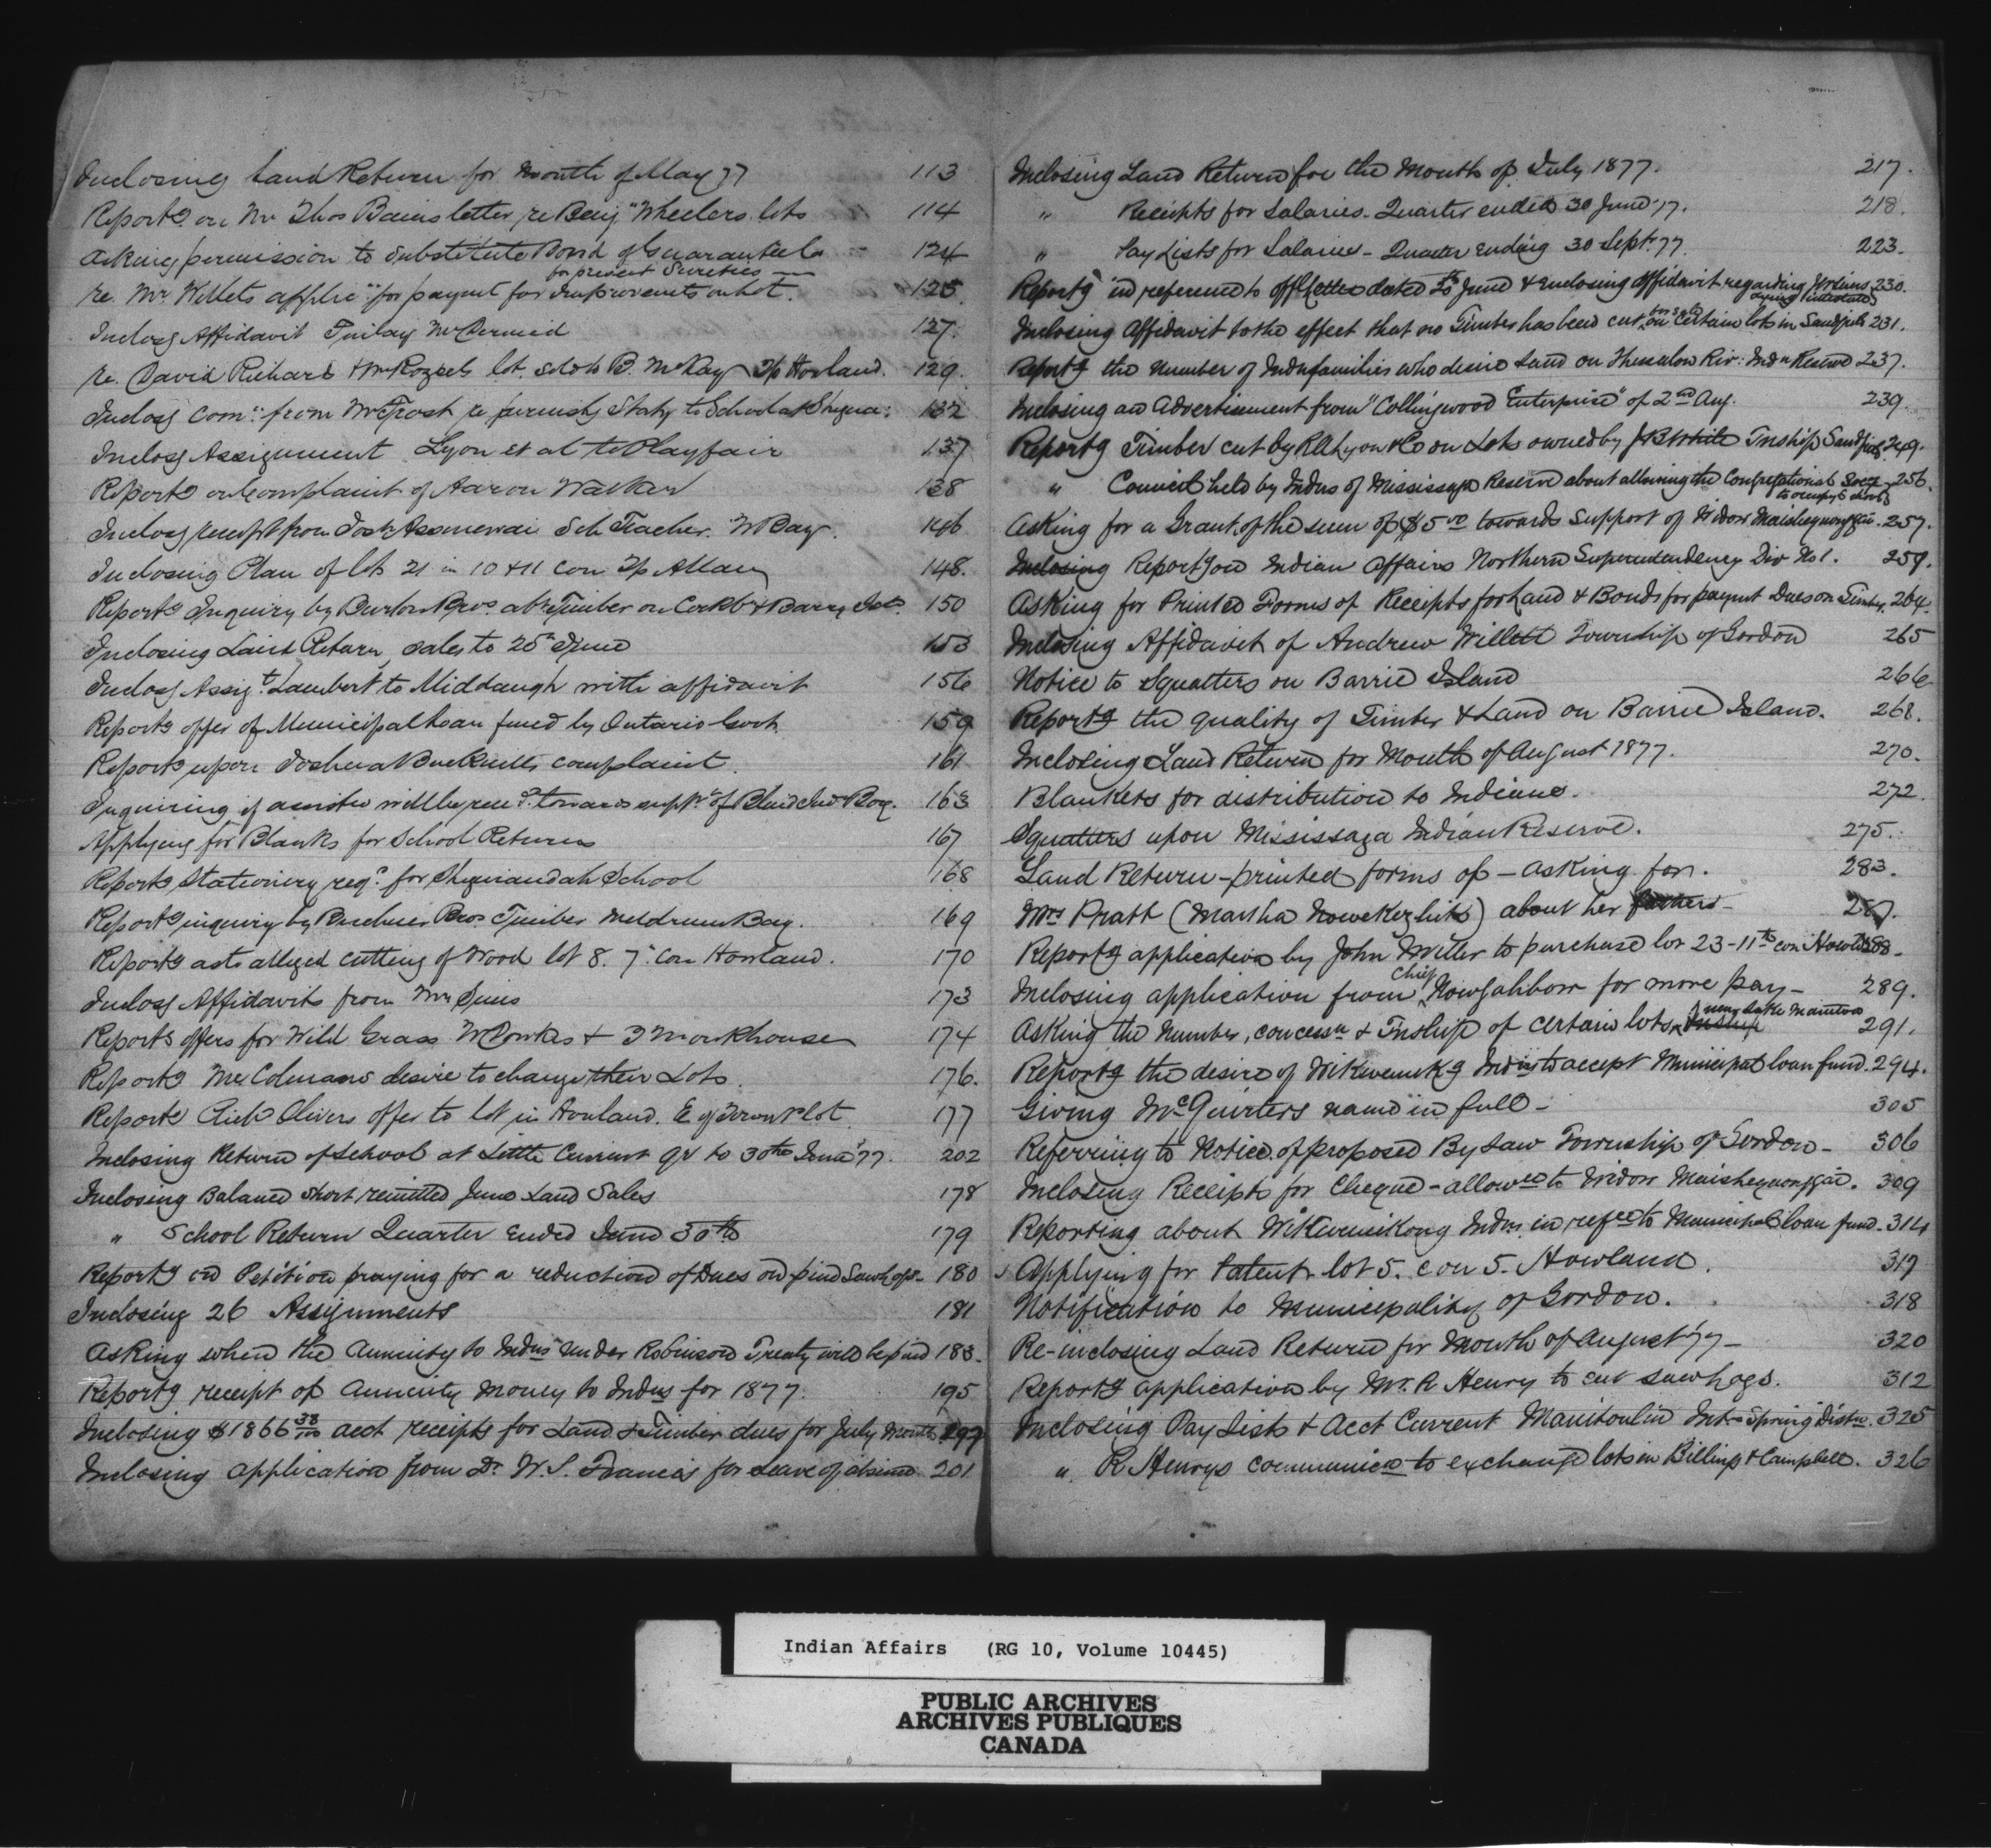 Inclosing Land Return for Month of May 77 113
Reportg on Mr Thos Bains letter re Benj Wheelers lots 114
Asking permission to substitute Bond of Guarantee Co for present Sureties 124
re. Mr. Willets applicn for paymt for Improvements on lot. 125
Inclosg Affidavit Finlay McDermid 127.
re. David Richard & Mr lot sold to B. McKay Tp Howland. 129.
Inclosg Comn from Mr Frost re furnishg Staty to School at Shegua: 132
Inclosg Assignment Lyon et al to Playfair 137
Reportg on Complaint of Aaron Walker 138
Inclosg receipt from Josh Assinewai Sch Teacher. W Bay. 146
Inclosing Plan of lots 21 in 10 & 11 con Tp Allan 148.
Reportg Inquiry by Burton Bros. abt Timber on Cockbn & Barry Isds. 150
Inclosing Land Return, sales to 25th June 153
Inclosg Assigt. Lambert to Middaugh with affidavit 156
Reportg offer of Municipal loan fund by Ontario Govt. 159
Reportg upon Joshua complaint. 161
Inquiring if assistce will be towards suppt of Blind Ind Boy. 163
Applying for Blanks for School Returns 167
Reportg Stationery reqd. for Sheguiandah School 168
Reportg inquiry by Bros. Timber Meldrum Bay. 169
Reportg as to alleged cutting of Wood lot 8. 7th Con Howland. 170
Inclosg Affidavits from Mr Sims 173
Reportg offers for Wild Grass & T Monkhouse 174
Reportg Mr Colmans desire to change their Lots. 176.
Reportg Richd Olivers offer to lot in Howland. E of Town Plot. 177
Inclosing Return of School at Little Current qr to 30th June 77. 202
Inclosing Balance short remitted June Land Sales 178
" School Return Quarter ended June 30th 179
Reportg on Petition praying for a reduction of Dues on pine Sawlogs- 180
Inclosing 26 Assignments 181
Asking when the Annuity to Indns under Robinson Treaty will be paid 183.
Reportg receipt of Annuity Money to Indns for 1877. 195
Inclosing $1866 38/100 acct receipts for Land & Timber dues for July Month. 197
Inclosing application from Dr. W. S. Francis for leave of absence 201
Inclosing Land Return for the Month of July 1877. 217.
" Receipts for Salaries - Quarter ended 30 June 77. 218.
" Pay Lists for Salaries - Quarter ending 30 Sept. 77. 223.
Reportg in reference to off letter dated June & enclosing affidavit regarding Mr Sims dying intestate 230.
Inclosing Affidavit to the effect that no Timber has been cut on certain lots in Sandfield 231.
Reportg the number of Indn families who desire Land on Thessalon Riv: Indn Reserve 237.
Inclosing an Advertisement from "Collingwood Enterprise" of 2nd Aug. 239.
Reportg Timber cut by R A Lyon & Co on Lots owned by J B White Tnship Sandfield 249.
" Council held by Indns of Mississaga Reserve about allowing the Congregational Socy to occupy school 256.
Asking for a Grant of the sum of $5 00 towards support of Widow Maishequonggai. 257.
Inclosing Reportg on Indian Affairs Northern Superintendency Div No 1. 259.
Asking for Printed Forms of Receipts for Land & Bonds for paymt Dues on Timber. 264.
Inclosing Affidavit of Andrew Willett Township of Gordon 265
Notice to Squatters on Barrie Island 266
Reportg the quality of Timber & Land on Barrie Island. 268.
Inclosing Land Return for Month of August 1877. 270.
Blankets for distribution to Indians. 272.
Squatters upon Mississaga Indian Reserve. 275.
Land Return - printed forms of - asking for. 283.
Mrs Pratt (Martha Nowekezhik) about her 287.
Reportg application by John Miller to purchase lot 23-11th con Howld 288.
Inclosing application from Chief Nowgahbow for more pay - 289.
Asking the number, concessn & Tnship of certain lots near Lake Manitou 291.
Reportg the desire of Wikwemikg Indns to accept Municipal loan fund. 294.
Giving McQuirters name in full - 305
Referring to Notice of proposed By Law Township of Gordon - 306
Inclosing Receipts for Cheque - allowed to Widow Maishequonggai. 309
Reporting about Wikwemikong Indns in refce to Municipal loan fund. 314
Applying for Patent lot 5. con 5. Howland. 317
Notification to Municipality of Gordon. 318
Re-inclosing Land Return for Month of August 77 - 320
Reportg application by Mr. R Henry to cut sawlogs. 312
Inclosing Pay Lists & Acct Current Manitoulin Intr Spring Distn. 325
" R Henrys communicn to exchange lots in Billings & Campbell. 326
Indian Affairs (RG 10, Volume 10445)
PUBLIC ARCHIVES
ARCHIVES PUBLIQUES
CANADA